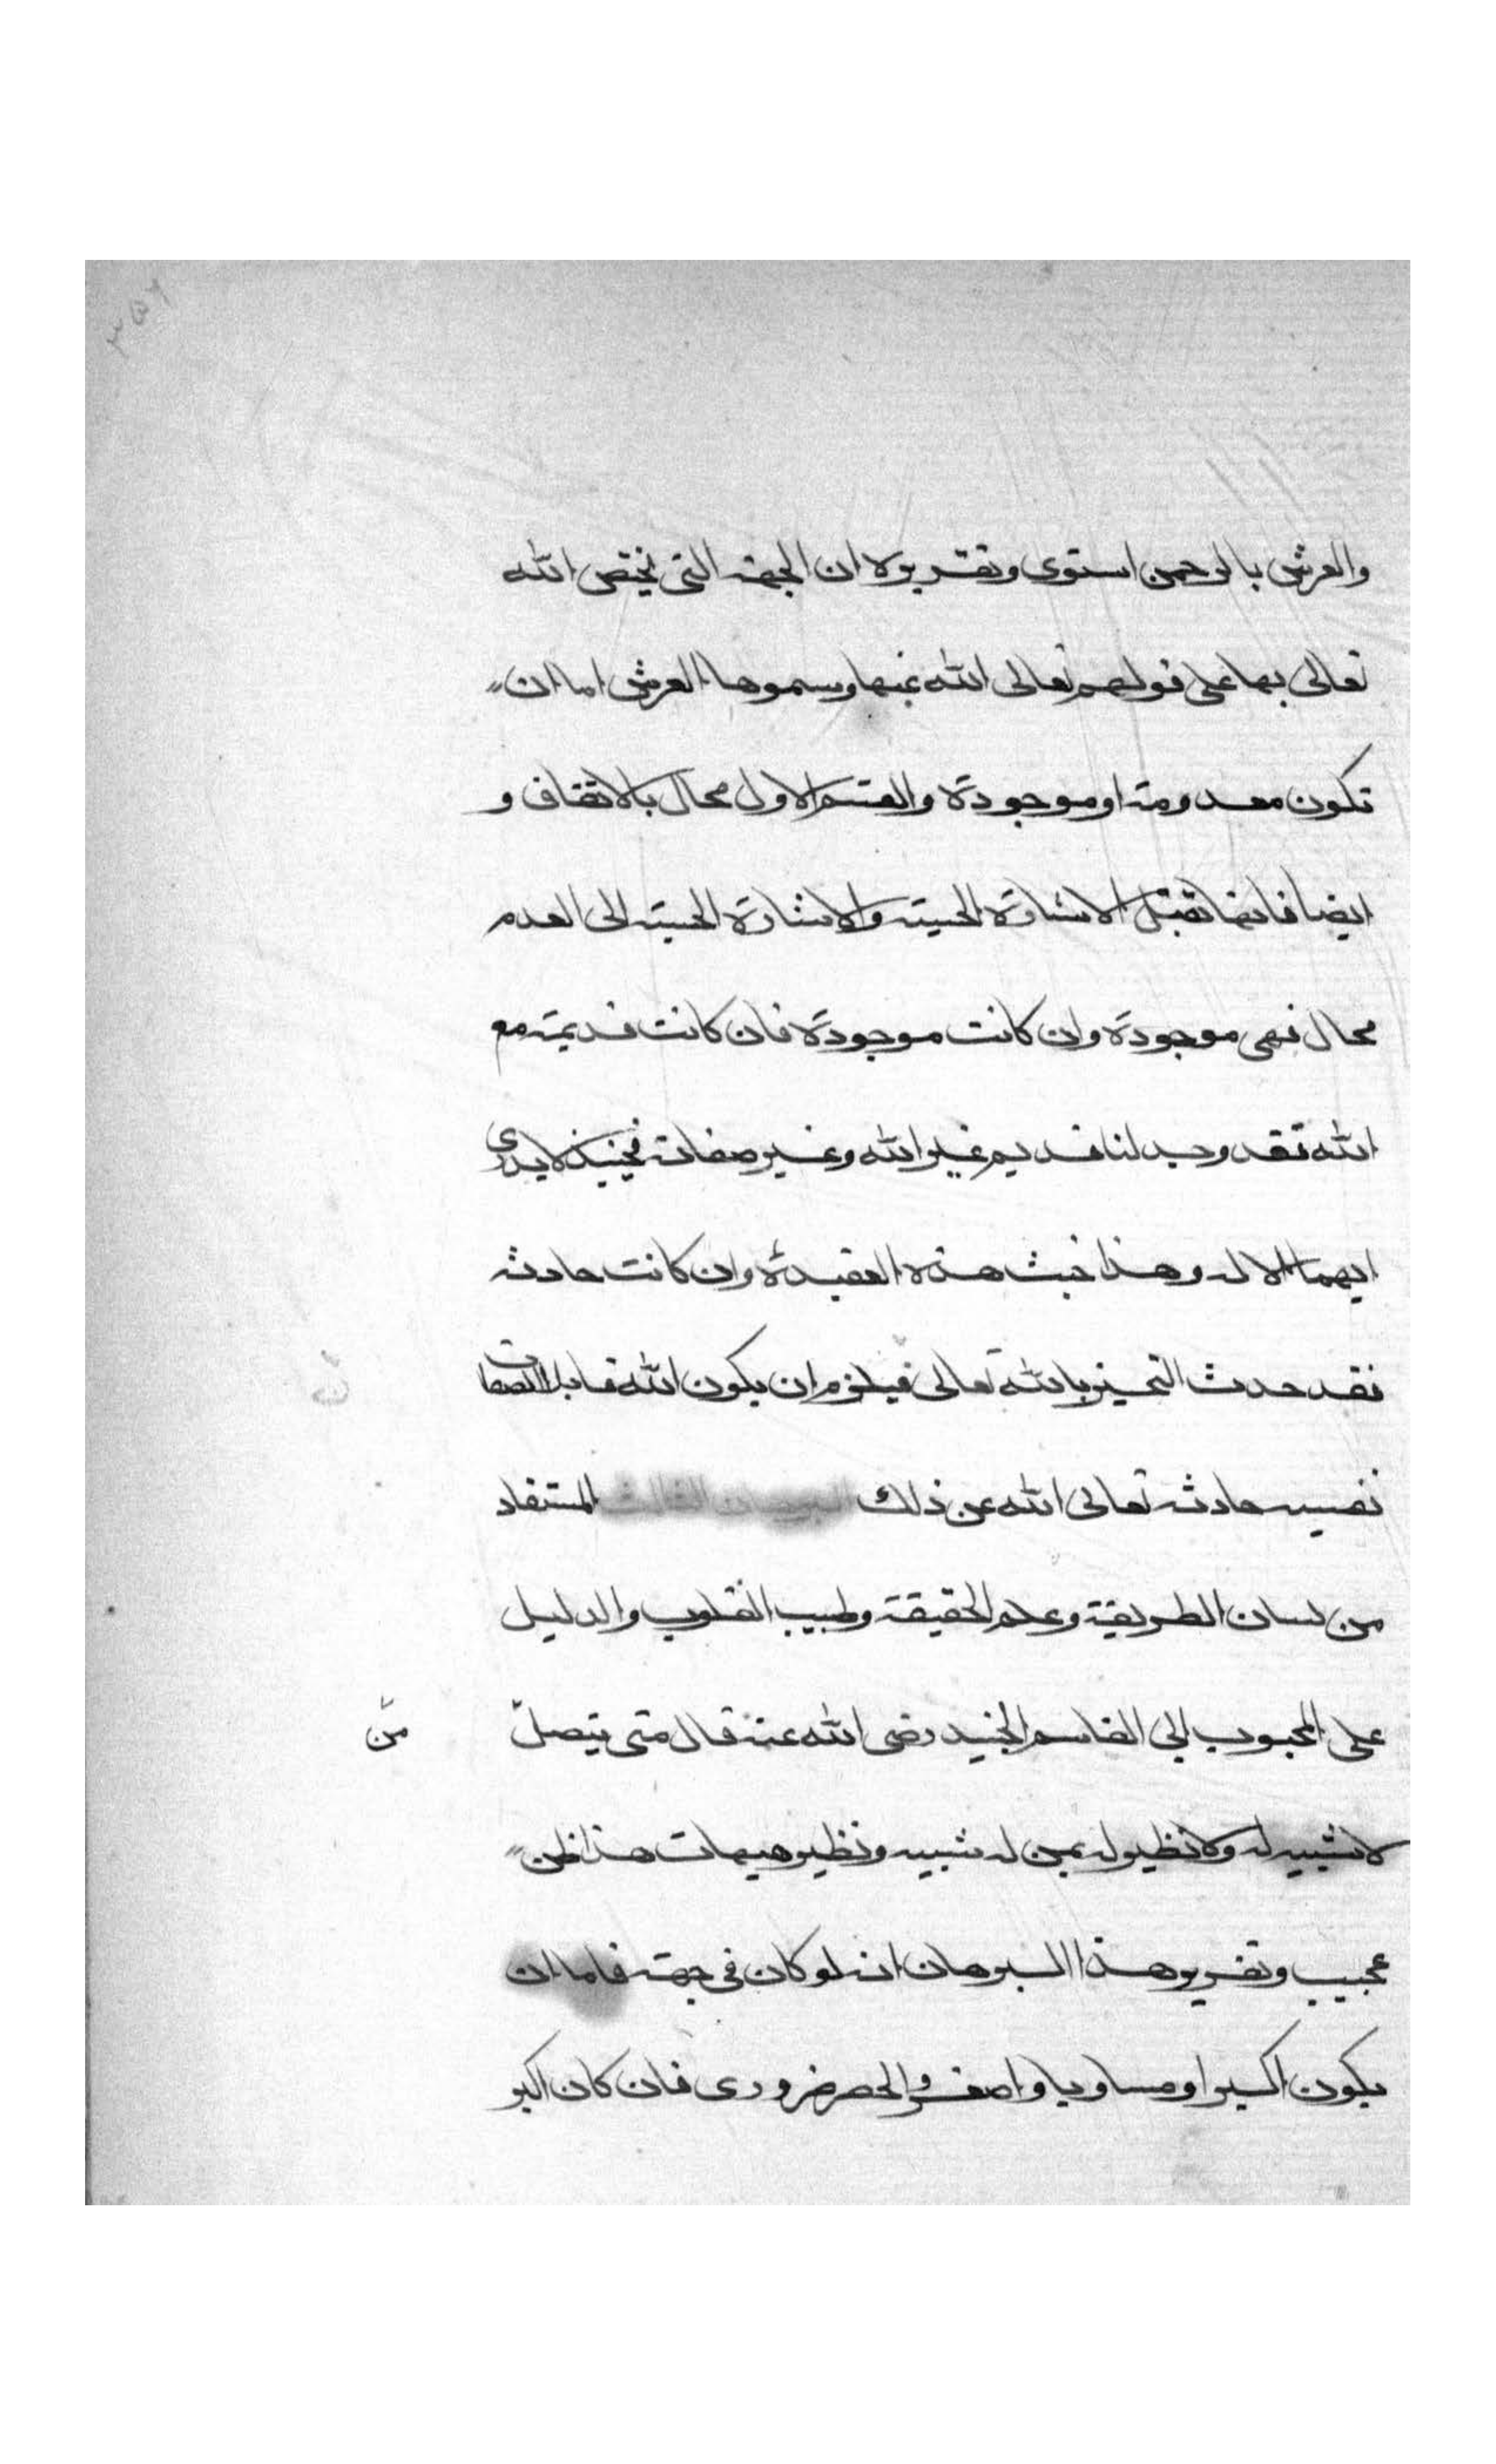 والعرش بالرحمن استوى وتقريره ان الجهة التي يختص الله
تعالى بها على قولهم تعالى الله عنها وسموها العرش اما ان
تكون معدومة او موجودة والقسم الاول محال بالاتفاق و
ايضا فانها تقبل الاشارة الحسية والاشارة الحسية الى العدم
محال فهي موجودة وان كانت موجودة فان كانت قديمة مع
الله فقد وجد لنا قديم غير الله وغير صفاته فحينئذ لا يدرى
ايهما الاله وهذا خبث هذه العقيدة وان كانت حادثة
فقد حدث التحيز بالله تعالى فيلزم ان يكون الله قابلا لصفات
نفسيه حادثة تعالى الله عن ذلك البرهان الثالث المستفاد
من لسان الطريقة وعلم الحقيقة وطبيب القلوب والدليل
على المحبوب ابي القاسم الجنيد رضى الله عنه قال متى يتصل
من
لا شبيه له ولا نظير له بمن له شبيه ونظير هيهات هذا ظن
عجيب وتقرير هذا البرهان انه لو كان في جهة فاما ان
يكون اكبر او مساويا او اصغر والحصر ضرورى فان كان اكبر